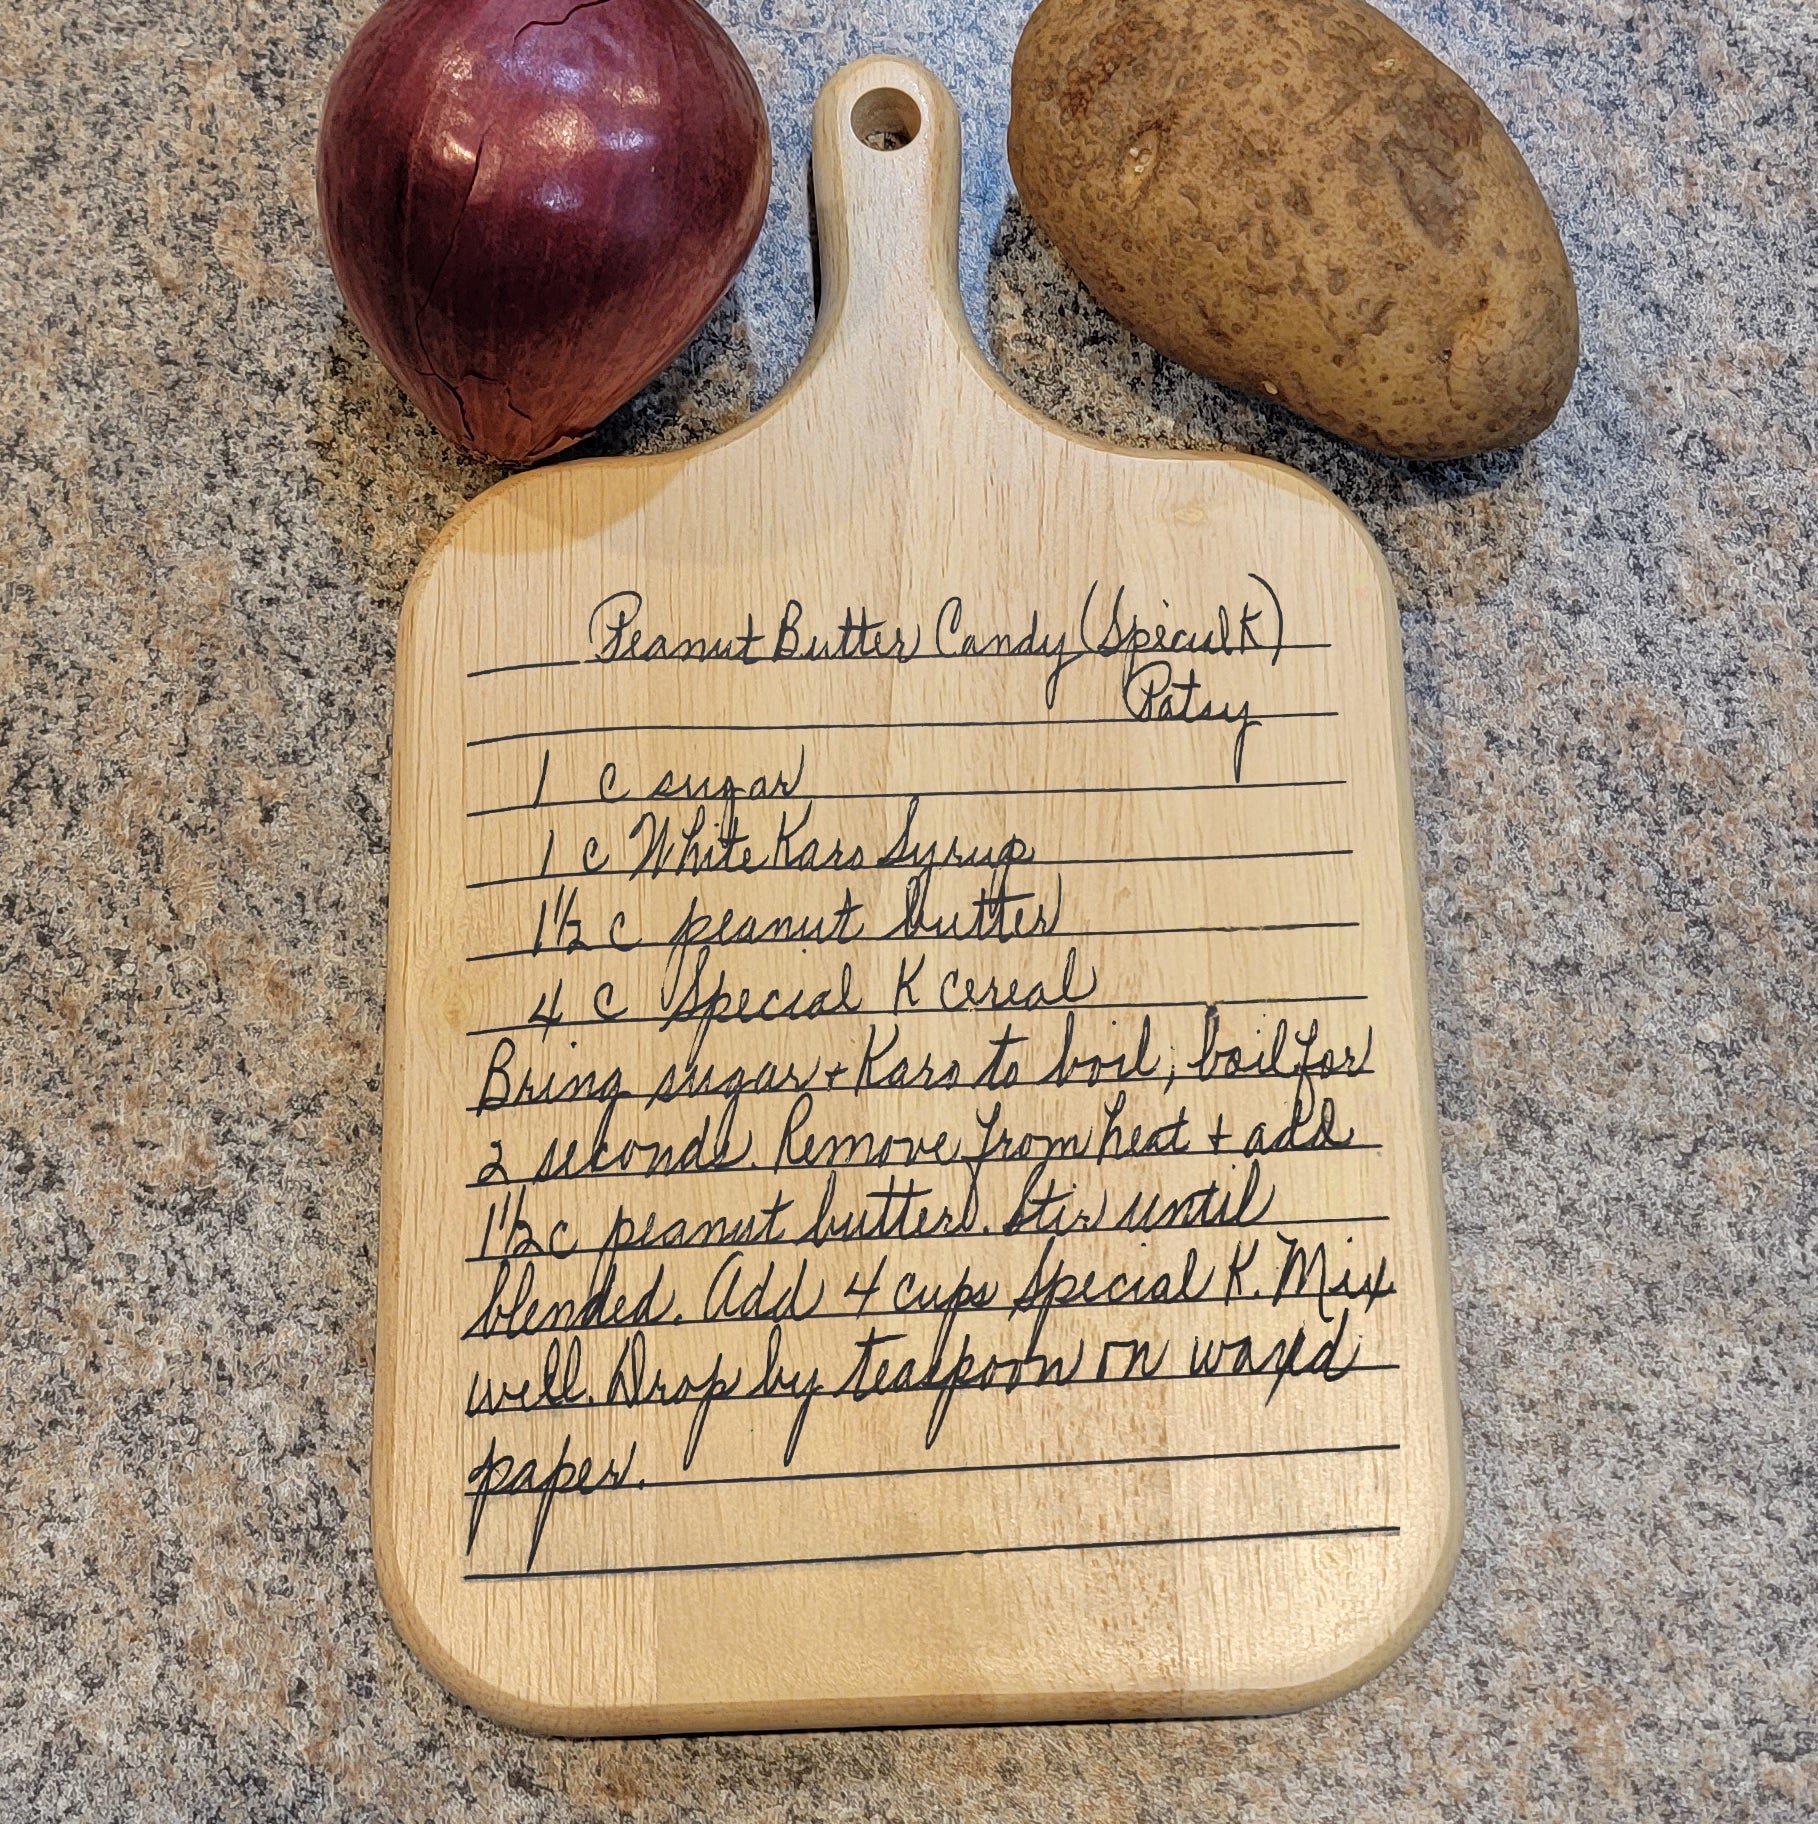 Peanut Butter Candy (Special K)
Patsy
1 c sugar
1 c White Karo Syrup
1½ c peanut butter
4 c Special K cereal
Bring sugar + Karo to boil; boil for
2 seconds. Remove from heat + add
1½ c peanut butter. Stir until
blended. Add 4 cups Special K. Mix
well. Drop by teaspoon on waxed
paper.